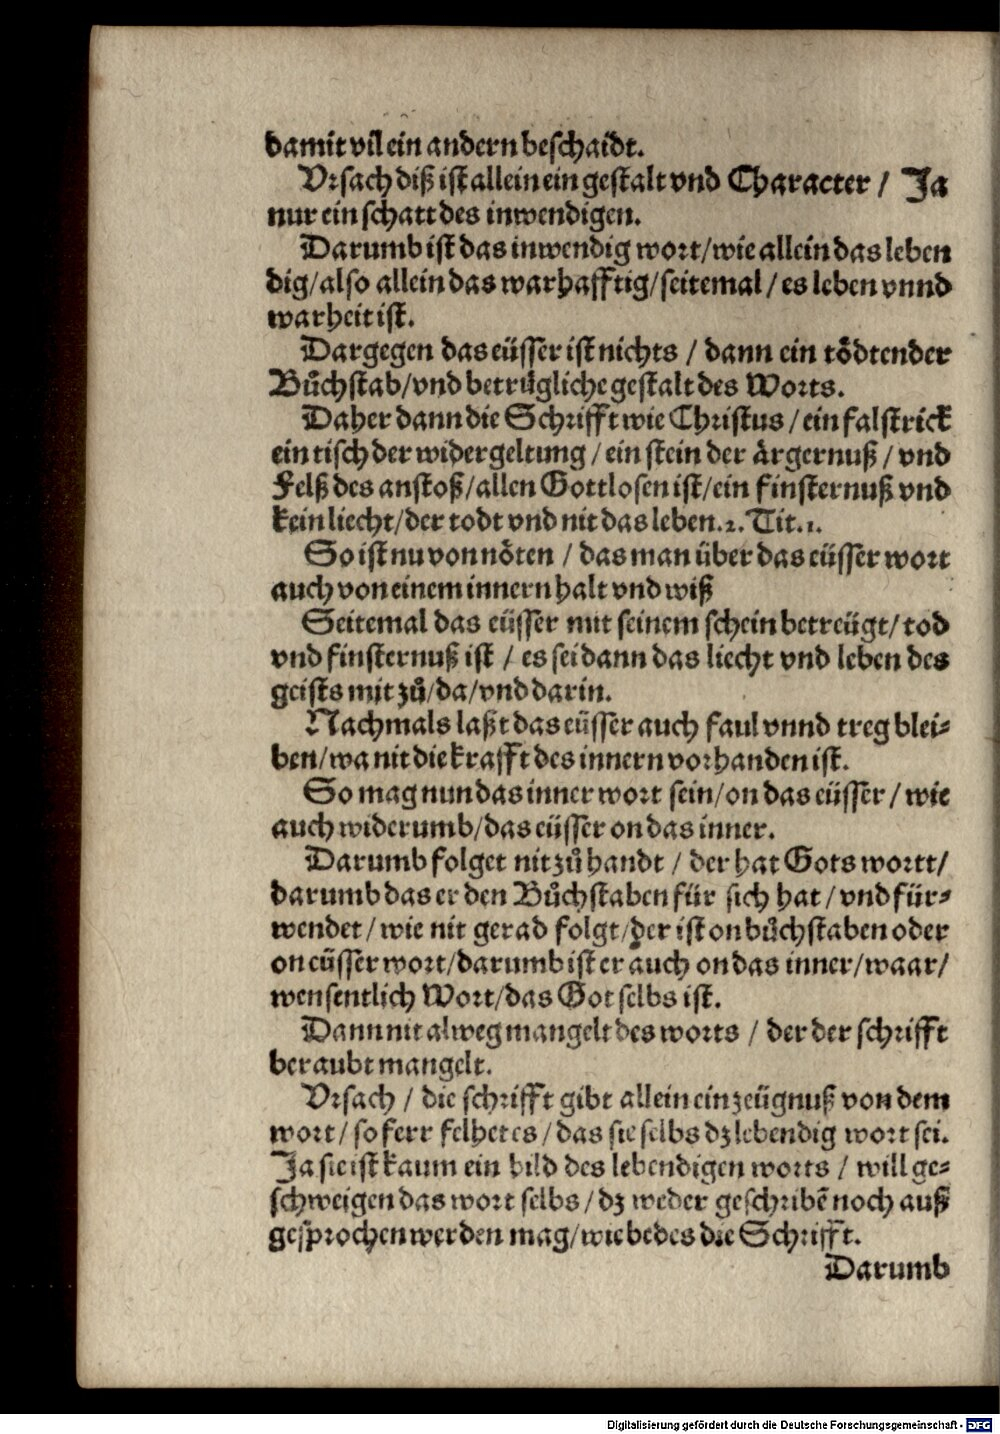 damit vil ein andern beschaidt.
Vrsach diß ist allein ein gestalt vnd Character / Ja
nur ein schatt des inwendigen.
Darumb ist das inwendig wort/wie allein das leben
dig/also allein das warhafftig/seitemal / es leben vnnd
warheit ist.
Dargegen das eüsser ist nichts / dann ein tödtender
Bůchstab/vnd betrügliche gestalt des Worts.
Daher dann die Schrifft wie Christus / ein falstrick
ein tisch der widergeltung / ein stein der ärgernuß / vnd
Felß des anstoß/allen Gottlosen ist/ein finsternuß vnd
kein liecht/der todt vnd nit das leben.2.Tit.1.
So ist nu von nöten / das man über das eüsser wort
auch von einem innern halt vnd wiß
Seitemal das eüsser mit seinem schein betreügt/tod
vnd finsternuß ist / es sei dann das liecht vnd leben des
geists mit zů/da/vnd darin.
Nachmals laßt das eüsser auch faul vnnd treg blei-
ben/wa nit die krafft des innern vorhanden ist.
So mag nun das inner wort sein/on das eüsser / wie
auch widerumb/das eüsser on das inner.
Darumb folget nit zů handt / der hat Gots wortt/
darumb das er den Bůchstaben für sich hat / vnd für-
wendet / wie nit gerad folgt/der ist on bůchstaben oder
on eüsser wort/darumb ist er auch on das inner/waar/
wensentlich Wort/das Got selbs ist.
Dann nit alweg mangelt des worts / der der schrifft
beraubt mangelt.
Vrsach / die schrifft gibt allein ein zeügnuß von dem
wort / so ferr felhet es / das sie selbs dz lebendig wort sei.
Ja sie ist kaum ein bild des lebendigen worts / will ge-
schweigen das wort selbs / dz weder geschribē noch auß
gesprochen werden mag/wie bedes die Schrifft.
Darumb
Digitalisierung gefördert durch die Deutsche Forschungsgemeinschaft - DFG